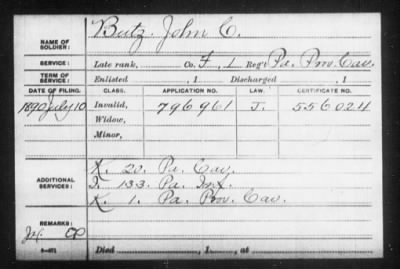 NAME OF SOLDIER: Butz, John C.
SERVICE: Late rank, Co. F, 1 Reg't Pa. Prov. Cav.
TERM OF SERVICE: Enlisted , 1 Discharged , 1
DATE OF FILING. CLASS. APPLICATION NO. LAW. CERTIFICATE NO.
1890 July 10 Invalid, 796961 J. 556024
Widow,
Minor,
ADDITIONAL SERVICES:
K. 20. Pa. Cav.
I. 133. Pa. Inf.
K. 1. Pa. Prov. Cav.
REMARKS:
Died , 1 , at